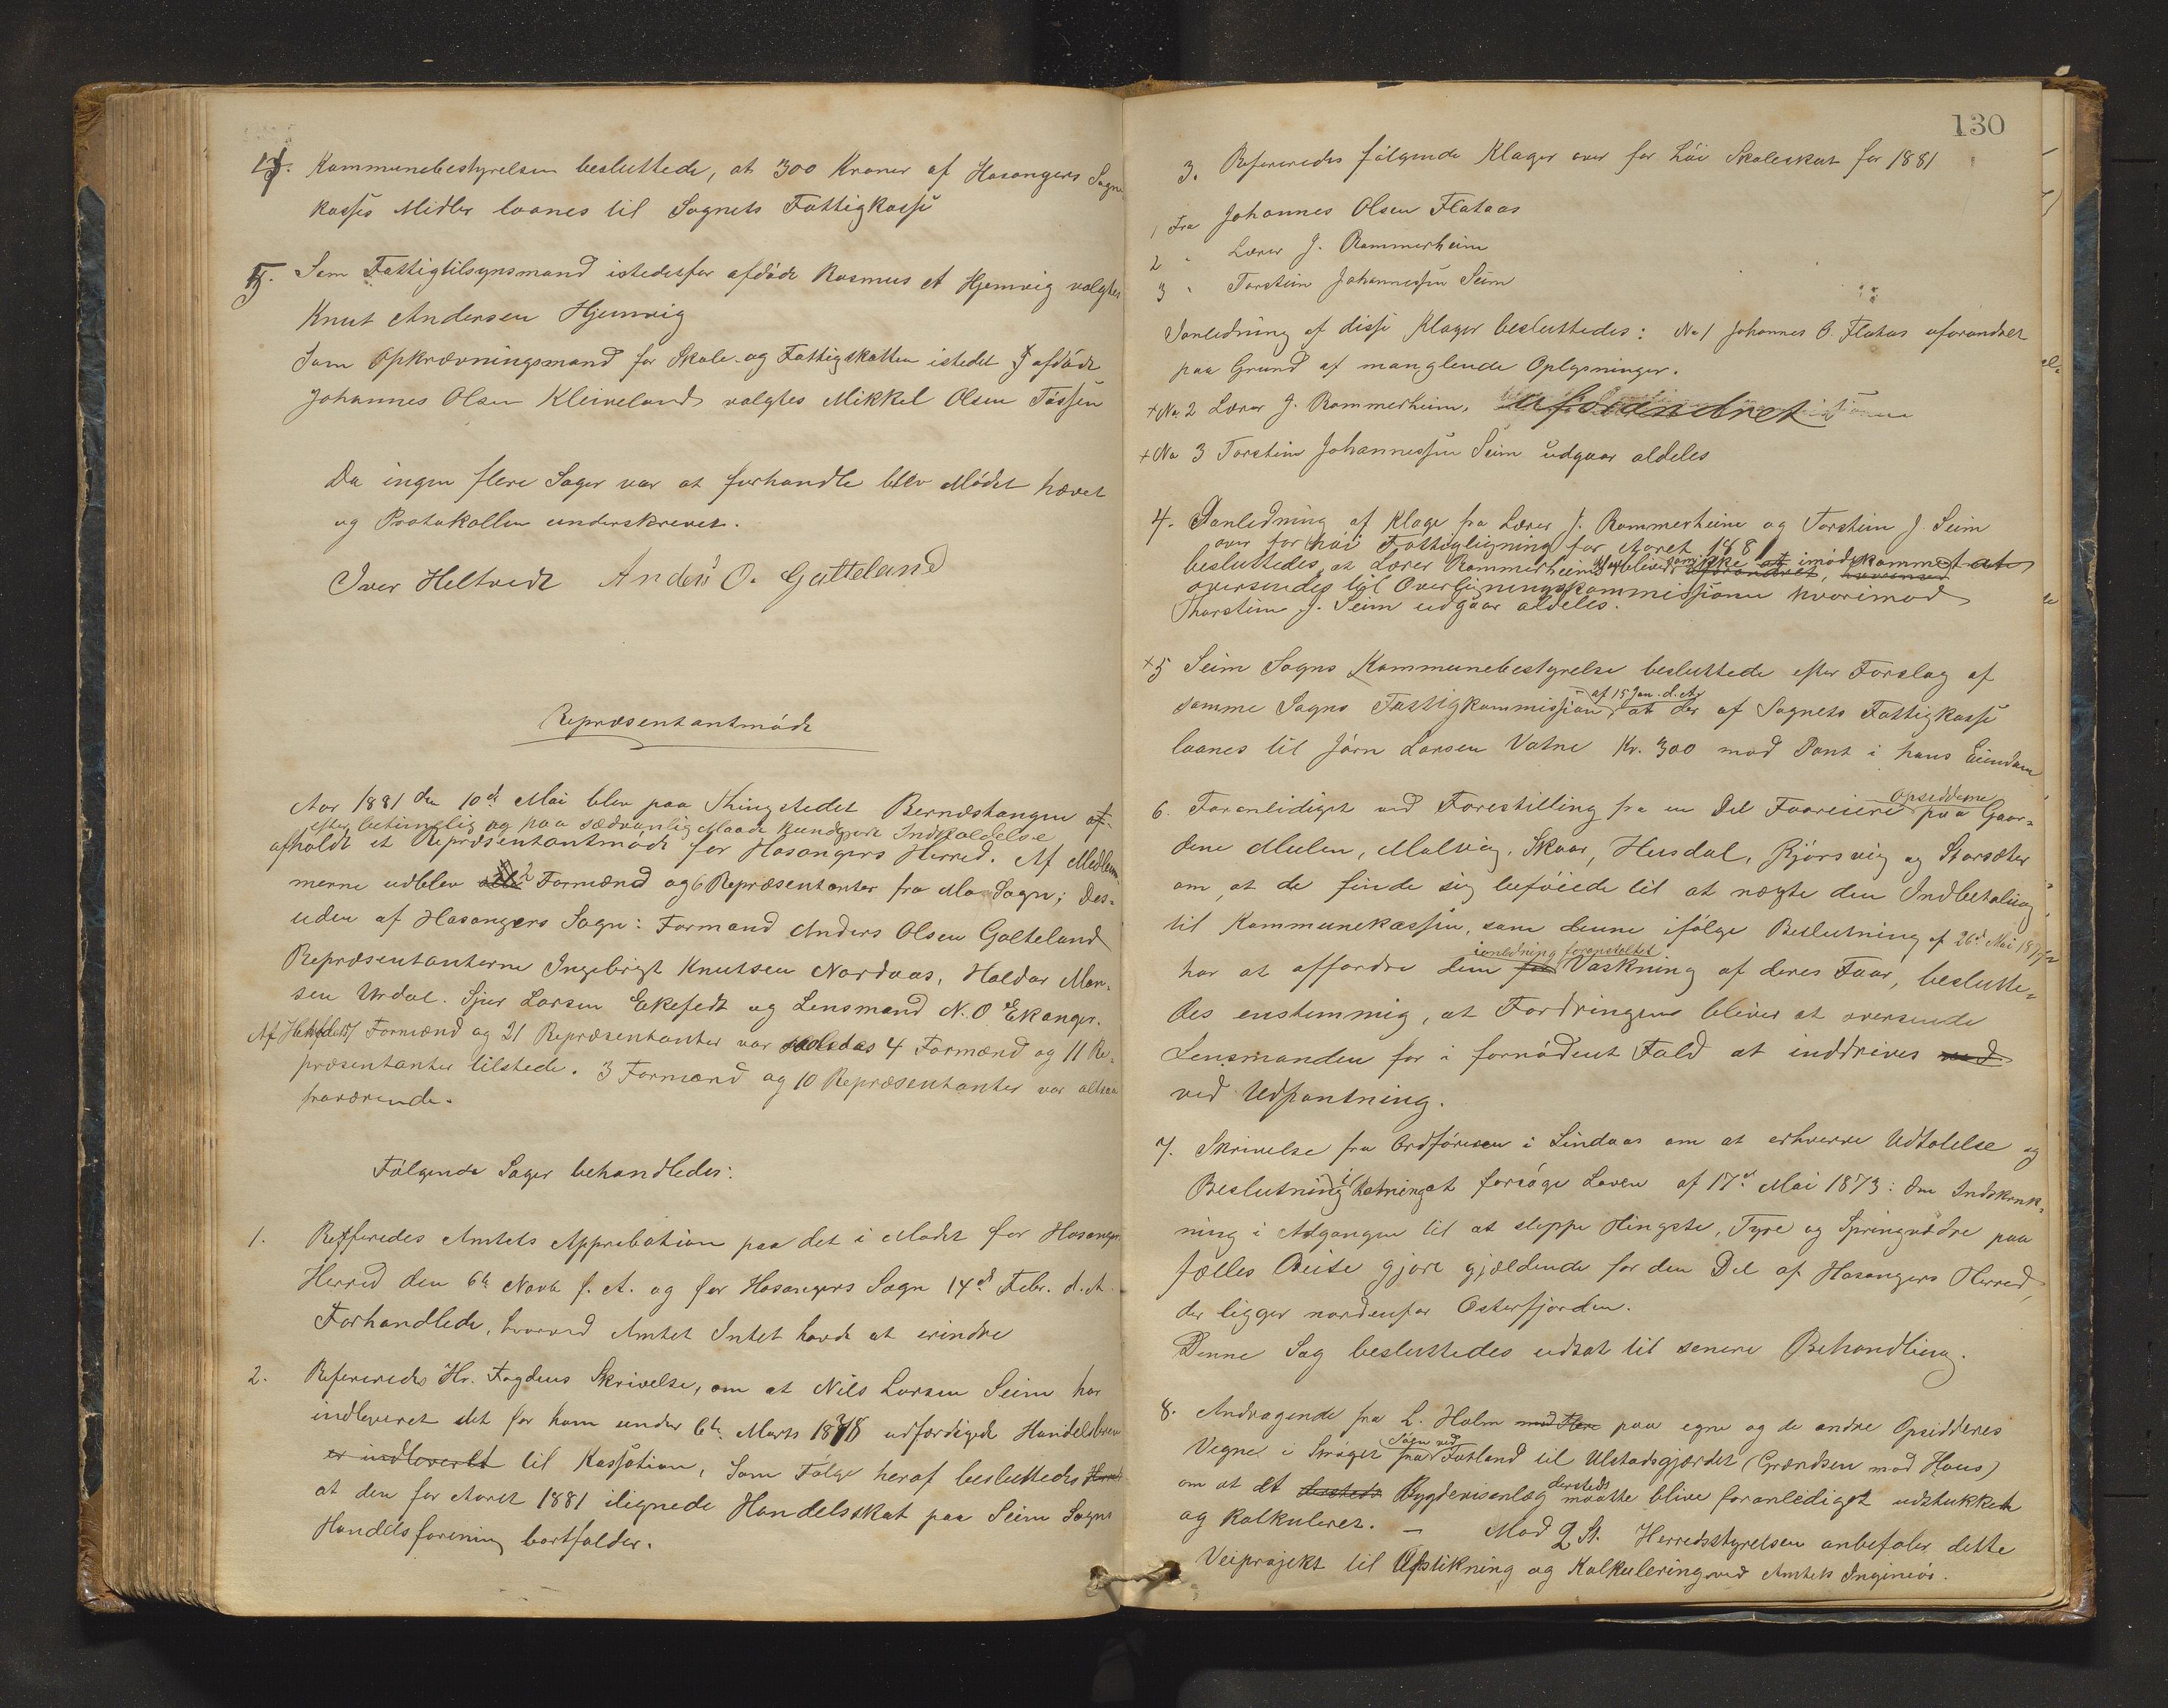 4. Kommunebestyrelsen besluttede, at 300 Kroner af Hosangers Sogne
kasses Midler laanes til Sognets Fattigkasse
5. Som Fattigtilsynsmand istedetfor afdöde Rasmus A Hjemvig valgtes
Knut Andersen Hjemvig
Som Opkrævningsmand for Skole- og Fattigskatten istedet f afdöde
Johannes Olsen Kleiveland valgtes Mikkel Olsen Tössen
Da ingen flere Sager var at forhandle blev Mödet hævet
og Protokollen underskrevet.
Iver Heltvedt Anders O. Galteland
Repræsentantmöde
Aar 1881 den 10de Mai blev paa Thingstedet Bernæstangen af-
efter betimelig og paa sædvanlig Maade kundgjort Indkaldelse
afholdt et Repræsentantmöde for Hosangers Herred. Af Medlem
merne udblev 2 Formænd og 6 Repræsentanter fra Mo Sogn; Des-
uden af Hosangers Sogn: Formand Anders Olsen Galteland
Repræsentanterne Ingebrigt Knutsen Nordaas, Haldor Mon-
sen Urdal. Sjur Larsen Ekefedt og Lensmand N. O Ekanger.
Af Herredets 7 Formænd og 21 Repræsentanter var saaledes 4 Formænd og 11 Re-
præsentanter tilstede. 3 Formænd og 10 Repræsentanter var altsaa
fraværende.
Fölgende Sager behandledes:
1. Refferedes Amtets Approbation paa det i Mödet for Hosanger
Herred den 6te Novb f. A. og for Hosangers Sogn 14de Febr. d. A.
Forhandlede, hvorved Amtet Intet havde at erindre
2. Refereredes Hr. Fogdens Skrivelse, om at Nils Larsen Seim har
indleveret det for ham under 6te Marts 1878 udfærdigede Handelsbrev
er indleveret til Kassation, Som Fölge heraf besluttedes
at den for Aaret 1881 ilignede Handelsskat paa Seim Sogns
Handelsforening bortfalder.
130
3. Refereredes fölgende Klager over for höi Skoleskat for 1881
1 Fra Johannes Olsen Flataas
2 " Lærer J. Rommerheim
3 " Torstein Johannessen Seim
Ianledning af disse Klager besluttedes: No 1 Johannes O. Flataas uforandret
paa Grund af manglende Oplysninger.
+ No 2 Lærer J. Rommerheim, uforandret
+ No 3 Torstein Johannessen Seim udgaar aldeles
4. Ianledning af Klage fra Lærer J. Rommerheim og Torstein J. Seim
over for höi Fattigligning for Aaret 1881
besluttedes, at Lærer Rommerheims bliver ikke at imödekommet at
oversendes til Overligningskommissionen hvorimod
Thorstein J. Seim udgaar aldeles.
+5 Seim Sogns Kommunebestyrelse besluttede efter Forslag af
af 15 Jan. d. A.
samme Sogns Fattigkommission, at der af Sognets Fattigkasse
laanes til Jörn Larsen Vatne Kr. 300 mod Pant i hans Eiendom
Opsidderne
6. Foranlediget ved Forestilling fra en Del Faareiere paa Gaar-
dene Mulen, Molvig, Skaar, Husdal, Bjørsvig og Storsæter
om, at de finde sig beföiede til at nægte den Indbetaling
til Kommunekassen, som denne ifölge Beslutning af 26de Mai 187
ianledning foranstaltet
har at affordre dem for Vaskning af deres Faar, beslutte-
des enstemmig, at Fordringen bliver at oversende
Lensmanden for i fornödent Fald at inddrives ved
ved Udpantning.
7. Skrivelse fra Ordföreren i Lindaas om at erhverve Udtalelse og
Beslutning i Retning at forsöge Loven af 17de Mai 1873: Om Indskrænk-
ning i Adgangen til at sleppe Hingste, Tyre og Springvædre paa
fælles Beite gjort gjældende for den Del af Hosangers Herred,
der ligger nordenfor Osterfjorden.
Denne Sag besluttedes udsat til senere Behandling.
8. Andragende fra L. Holm med Flere paa egne og de andre Opsidderes
Vegne i Ströget fra Söen ved Fotland til Ulstadsgjærdet (Grændsen mod Haus)
om at et dersteds Bygdeveisanlæg maatte blive foranlediget udstukket
og kalkuleret. — Mod 2 St. Herredsstyrelsen anbefaler dette
Veiprojekt til Opstikning og Kalkulering ved Amtets Ingeniör.